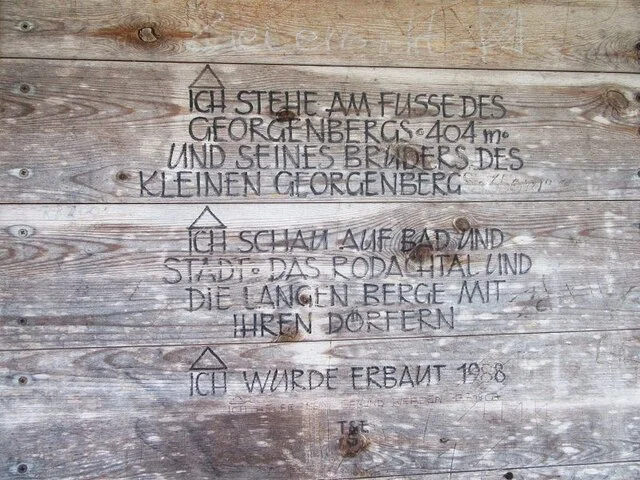 ICH STEHE AM FUSSE DES
GEORGENBERGS · 404 m ·
UND SEINES BRUDERS DES
KLEINEN GEORGENBERG
ICH SCHAU AUF BAD UND
STADT · DAS RODACHTAL UND
DIE LANGEN BERGE MIT
IHREN DÖRFERN
ICH WURDE ERBAUT 1988
T&E